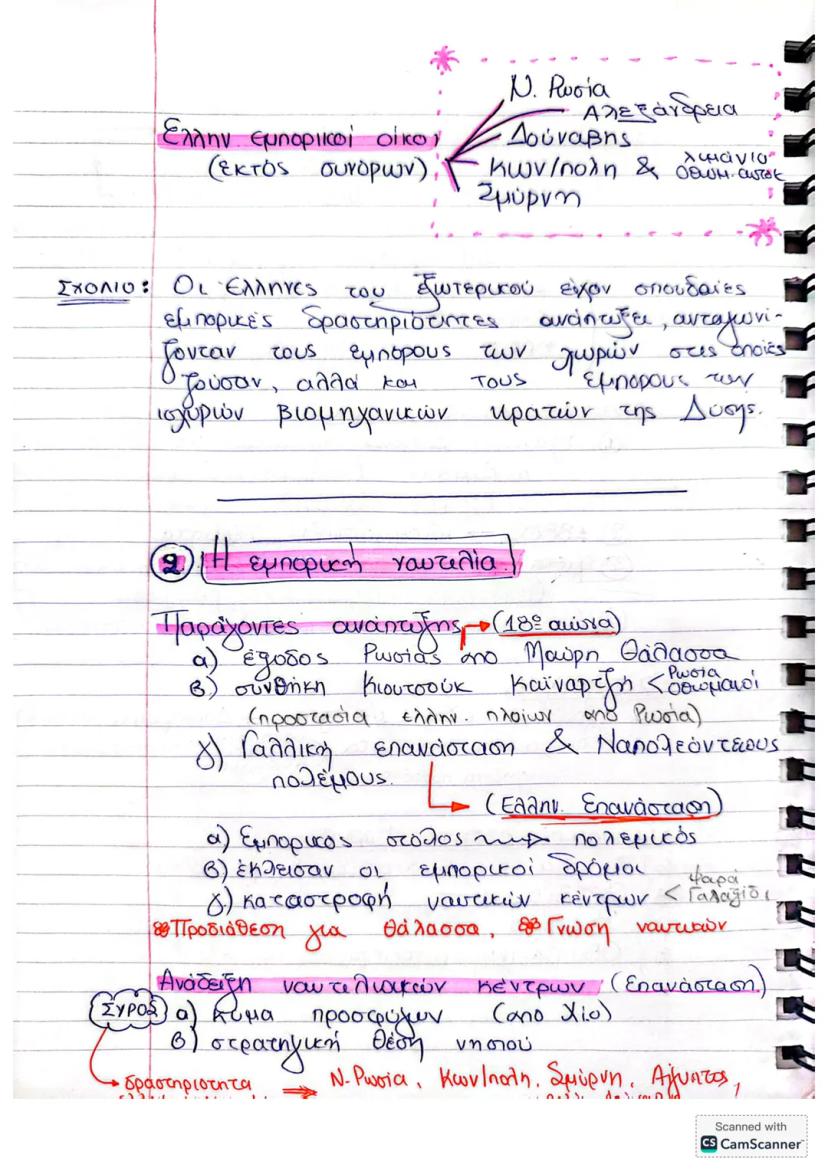 Ν. Ρωσία
Αλεξάνδρεια
Ελλην εμπορικοί οίκοι
Δούναβης
(εκτός συνόρων)
Κων/πολη & λιμάνια οθωμ. αυτοκ
Σμύρνη
Σχόλιο: Οι Έλληνες του εξωτερικού είχαν σπουδαίες
εμπορικές δραστηριότητες ανάπτυξει, ανταγωνί-
ζονταν τους εμπόρους των χωρών στις οποίες
ζούσαν, αλλά και τους εμπόρους των
ισχυρών βιομηχανικών κρατών της Δύσης.
2 Η εμπορική ναυτιλία.
Παράγοντες ανάπτυξης → (18ο αιώνα)
α) έξοδος Ρωσίας από Μαύρη Θάλασσα
β) συνθήκη Κιουτσούκ Καϊναρτζή < Ρωσία
Οθωμανοί
(προστασία ελλην. πλοίων από Ρωσία)
γ) Γαλλική επανάσταση & Ναπολεόντειους
πολέμους.
→ (Ελλην. Επανάσταση)
α) Εμπορικός στόλος → πολεμικός
β) έκλεισαν οι εμπορικοί δρόμοι
γ) καταστροφή ναυτικών κέντρων < Ψαρά
Γαλαξίδι
Προδιάθεση για θάλασσα, Γνώση ναυτικών
Ανάδειξη ναυτιλιακών κέντρων (Επανάσταση)
ΣΥΡΟΣ α) κύμα προσφύγων (από Χίο)
β) στρατηγική θέση νησιού
→ δραστηριότητα ⇒ Ν. Ρωσία, Κων/πολη, Σμύρνη, Αίγυπτος,
Scanned with
CS CamScanner